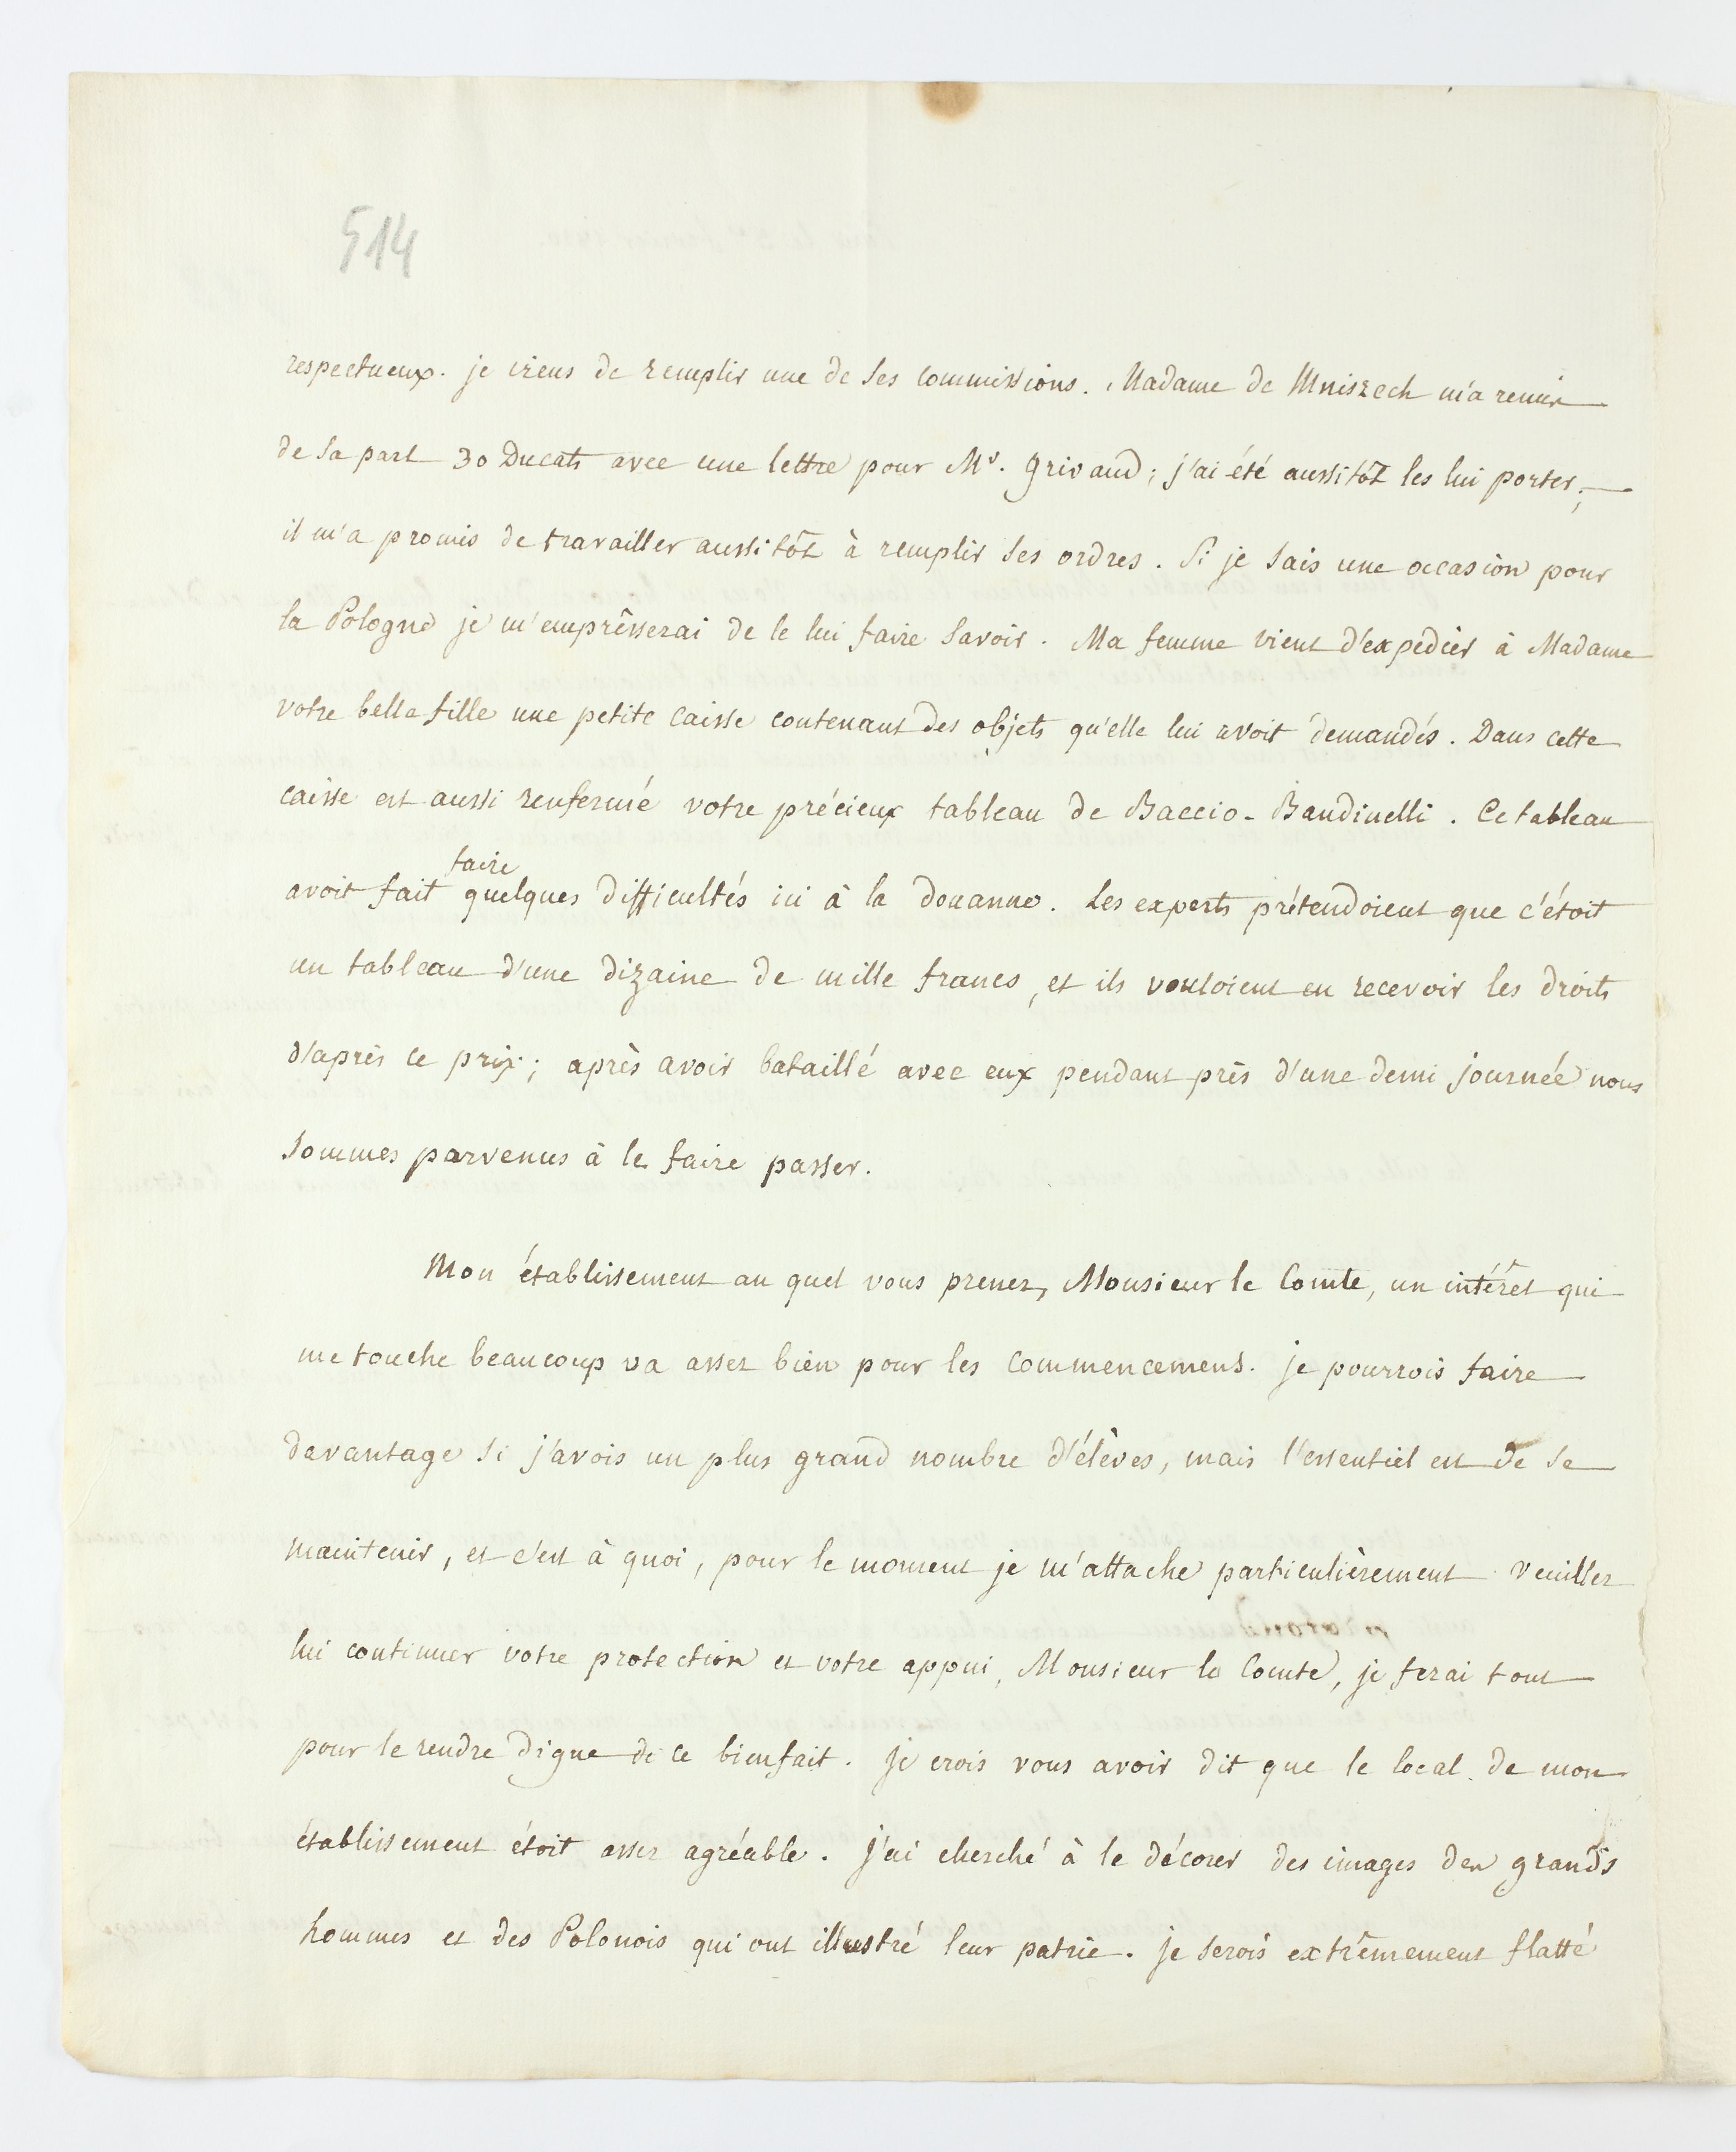 514
respectueux. je viens de remplir une de ses commissions. Madame de Mniszech m'a remis
de sa part 30 Ducats avec une lettre pour Mr. Grivaud; j'ai été aussitôt les lui porter;
il m'a promis de travailler aussitôt à remplir ses ordres. Si je sais une occasion pour
la Pologne je m'emprêsserai de le lui faire savoir. Ma femme vient d'expédier à Madame
votre belle fille une petite caisse contenant des objets qu'elle lui avoit demandés. Dans cette
caisse est aussi renfermé votre précieux tableau de Baccio-Bandinelli. Ce tableau
faire
avoit fait quelques difficultés ici à la douanne. Les experts prétendoient que c'étoit
un tableau d'une dizaine de mille francs, et ils vouloient en recevoir les droits
d'après ce prix; après avoir bataillé avec eux pendant près d'une demi journée nous
sommes parvenus à le faire passer.
Mon établissement au quel vous prenez, Monsieur le Comte, un intérêt qui
me touche beaucoup va assez bien pour les commencemens. je pourrois faire
davantage si j'avois un plus grand nombre d'élèves, mais l'essentiel est de se
maintenir, et c'est à quoi, pour le moment je m'attache particulièrement. Veuillez
lui continuer votre protection et votre appui, Monsieur le Comte, je ferai tout
pour le rendre digne de ce bienfait. Je crois vous avoir dit que le local de mon
établissement étoit assez agréable. J'ai cherché à le décorer des images des grands
hommes et des Polonois qui ont illustré leur patrie. je serois extrêmement flatté